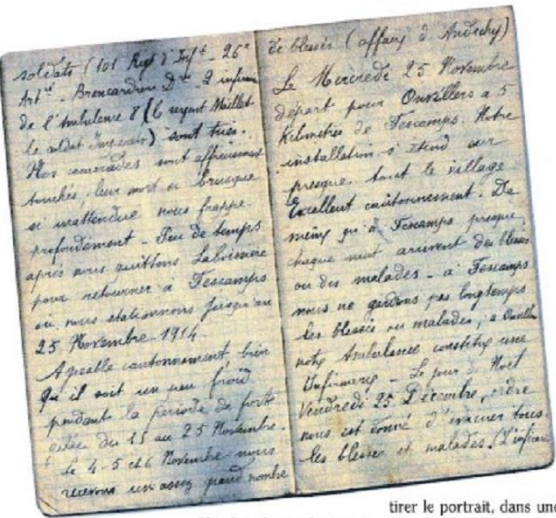 soldats (101 Regt d'Inft - 26e
Artie - Brancardiers Dre - 2 infirm
de l'Ambulance 8 (le sergent Maillet
le soldat ) sont tués.
Nos camarades sont affreusement
touchés, leur mort si brusque
si inattendue nous frappe
profondement - Peu de temps
après nous quittons Laboissiere
pour retourner à Fescamps
où nous stationnons jusqu'au
25 Novembre 1914
Agréable cantonnement bien
qu'il soit un peu froid
pendant la période de forte
gelée du 15 au 25 Novembre.
le 4-5 et 6 Novembre nous
recevons un assez grand nombre
de blessés (affaire d'Andechy)
Le Mercredi 25 Novembre
départ pour Onvillers a 5
Kilomètres de Fescamps. Notre
installation s'étend sur
presque tout le village
Excellent cantonnement. De
même qu'à Fescamps presque
chaque nuit arrivent des blessés
ou des malades - à Fescamps
nous ne gardons pas longtemps
les blessés ou malades, a Onvillers
notre Ambulance constitue une
Infirmerie - Le jour de Noël
Vendredi 25 Décembre, ordre
nous est donné d'évacuer tous
les blessés et malades. L'infirm
tirer le portrait, dans une